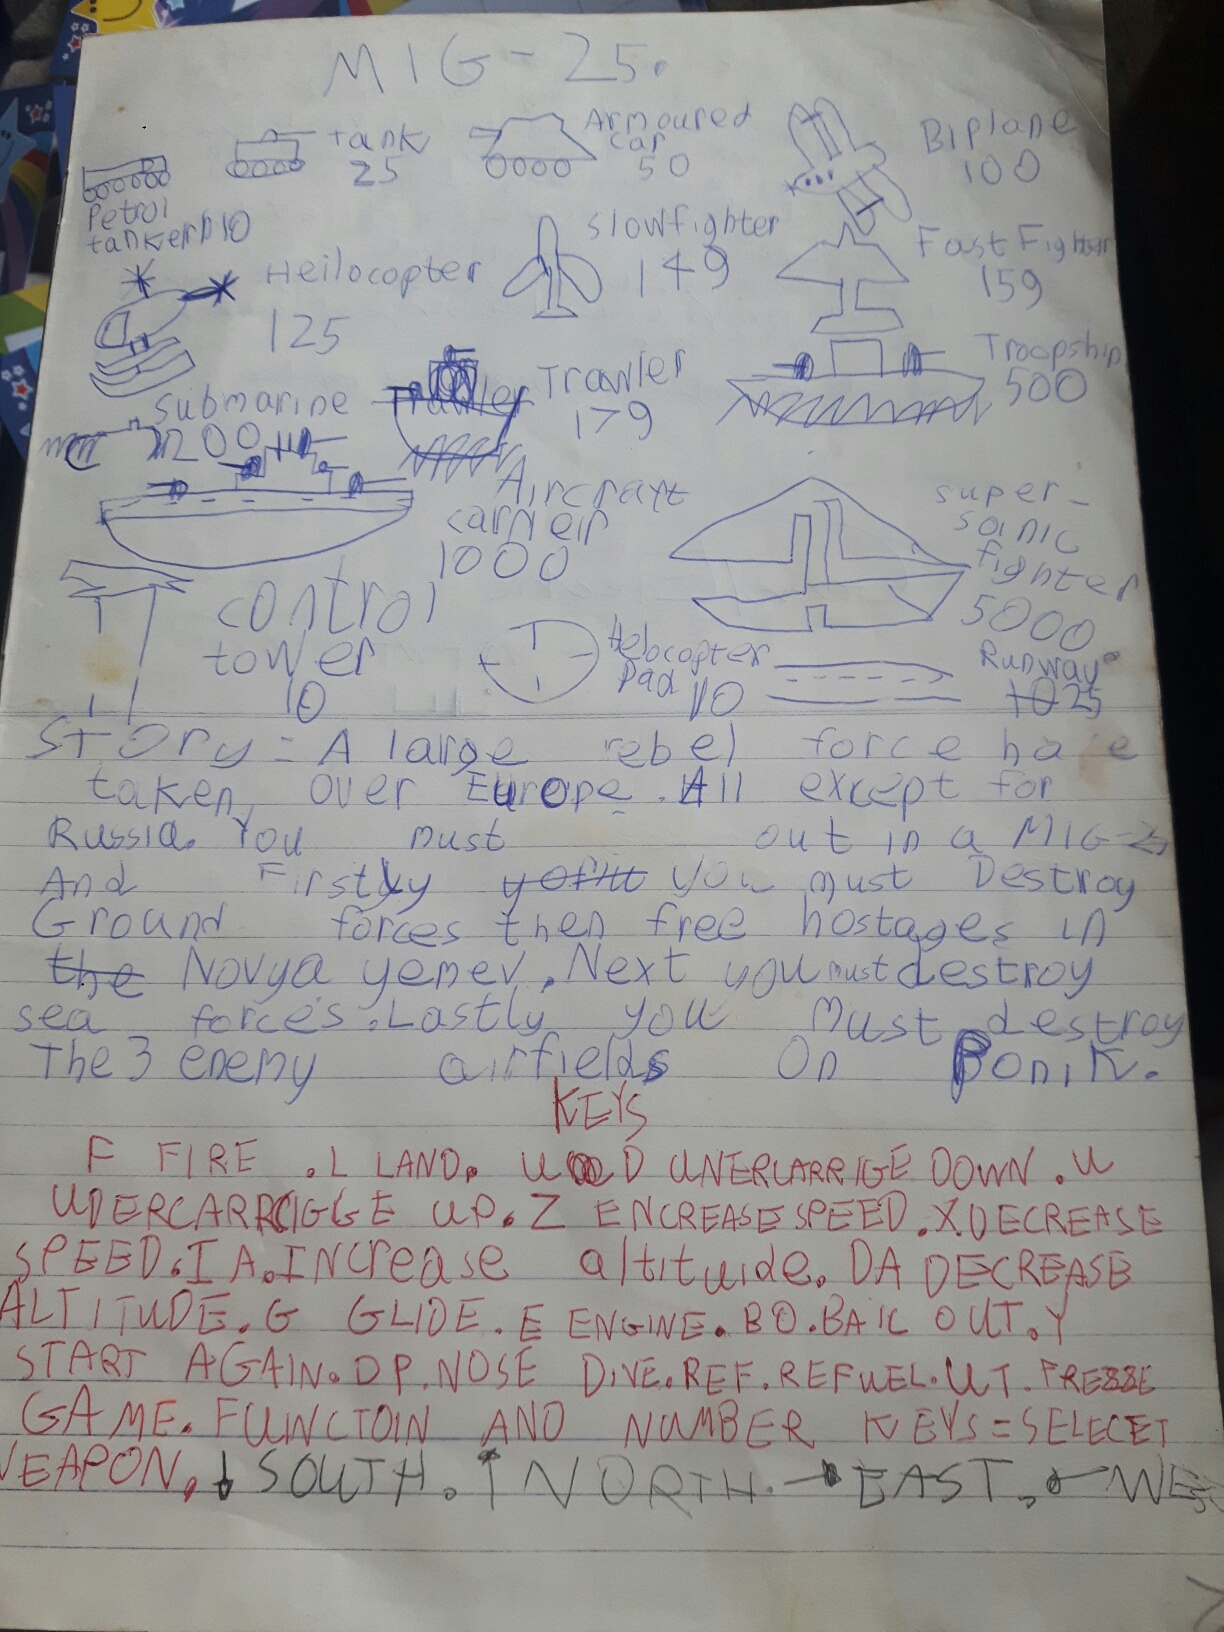 MIG-25.
tank
25
Armoured
car
50
Biplane
100
Petrol
tanker 10
Slowfighter
149
Fast Fighter
159
Heilocopter
125
Trawler
179
Troopship
500
submarine
200
Aircraft
carrieir
1000
super-
sanic
fighter
5000
control
tower
10
Helocopter
Pad 10
Runway
25
Story = A large rebel force have
taken over Europe. All except for
Russia. You must out in a MIG-25
And Firstly you must Destroy
Ground forces then free hostages in
the Novya yemev. Next you must destroy
sea forces. Lastly you Must destroy
The 3 enemy airfields On Bonik.
KEYS
F FIRE .L LAND. U D UNERCARRIGE DOWN .U
UDERCARRIGGE UP. Z ENCREASE SPEED. X.DECREASE
SPEED. I A. INCrease altituide. DA DECREASE
ALTITUDE. G GLIDE. E ENGINE. BO. BAIL OUT. Y
START AGAIN. DP. NOSE DIVE. REF. REFUEL. UT. FREZZE
GAME. FUNCTOIN AND NUMBER KEYS = SELECET
WEAPON. ↓ SOUTH. ↑ NORTH. → EAST. ← WEST